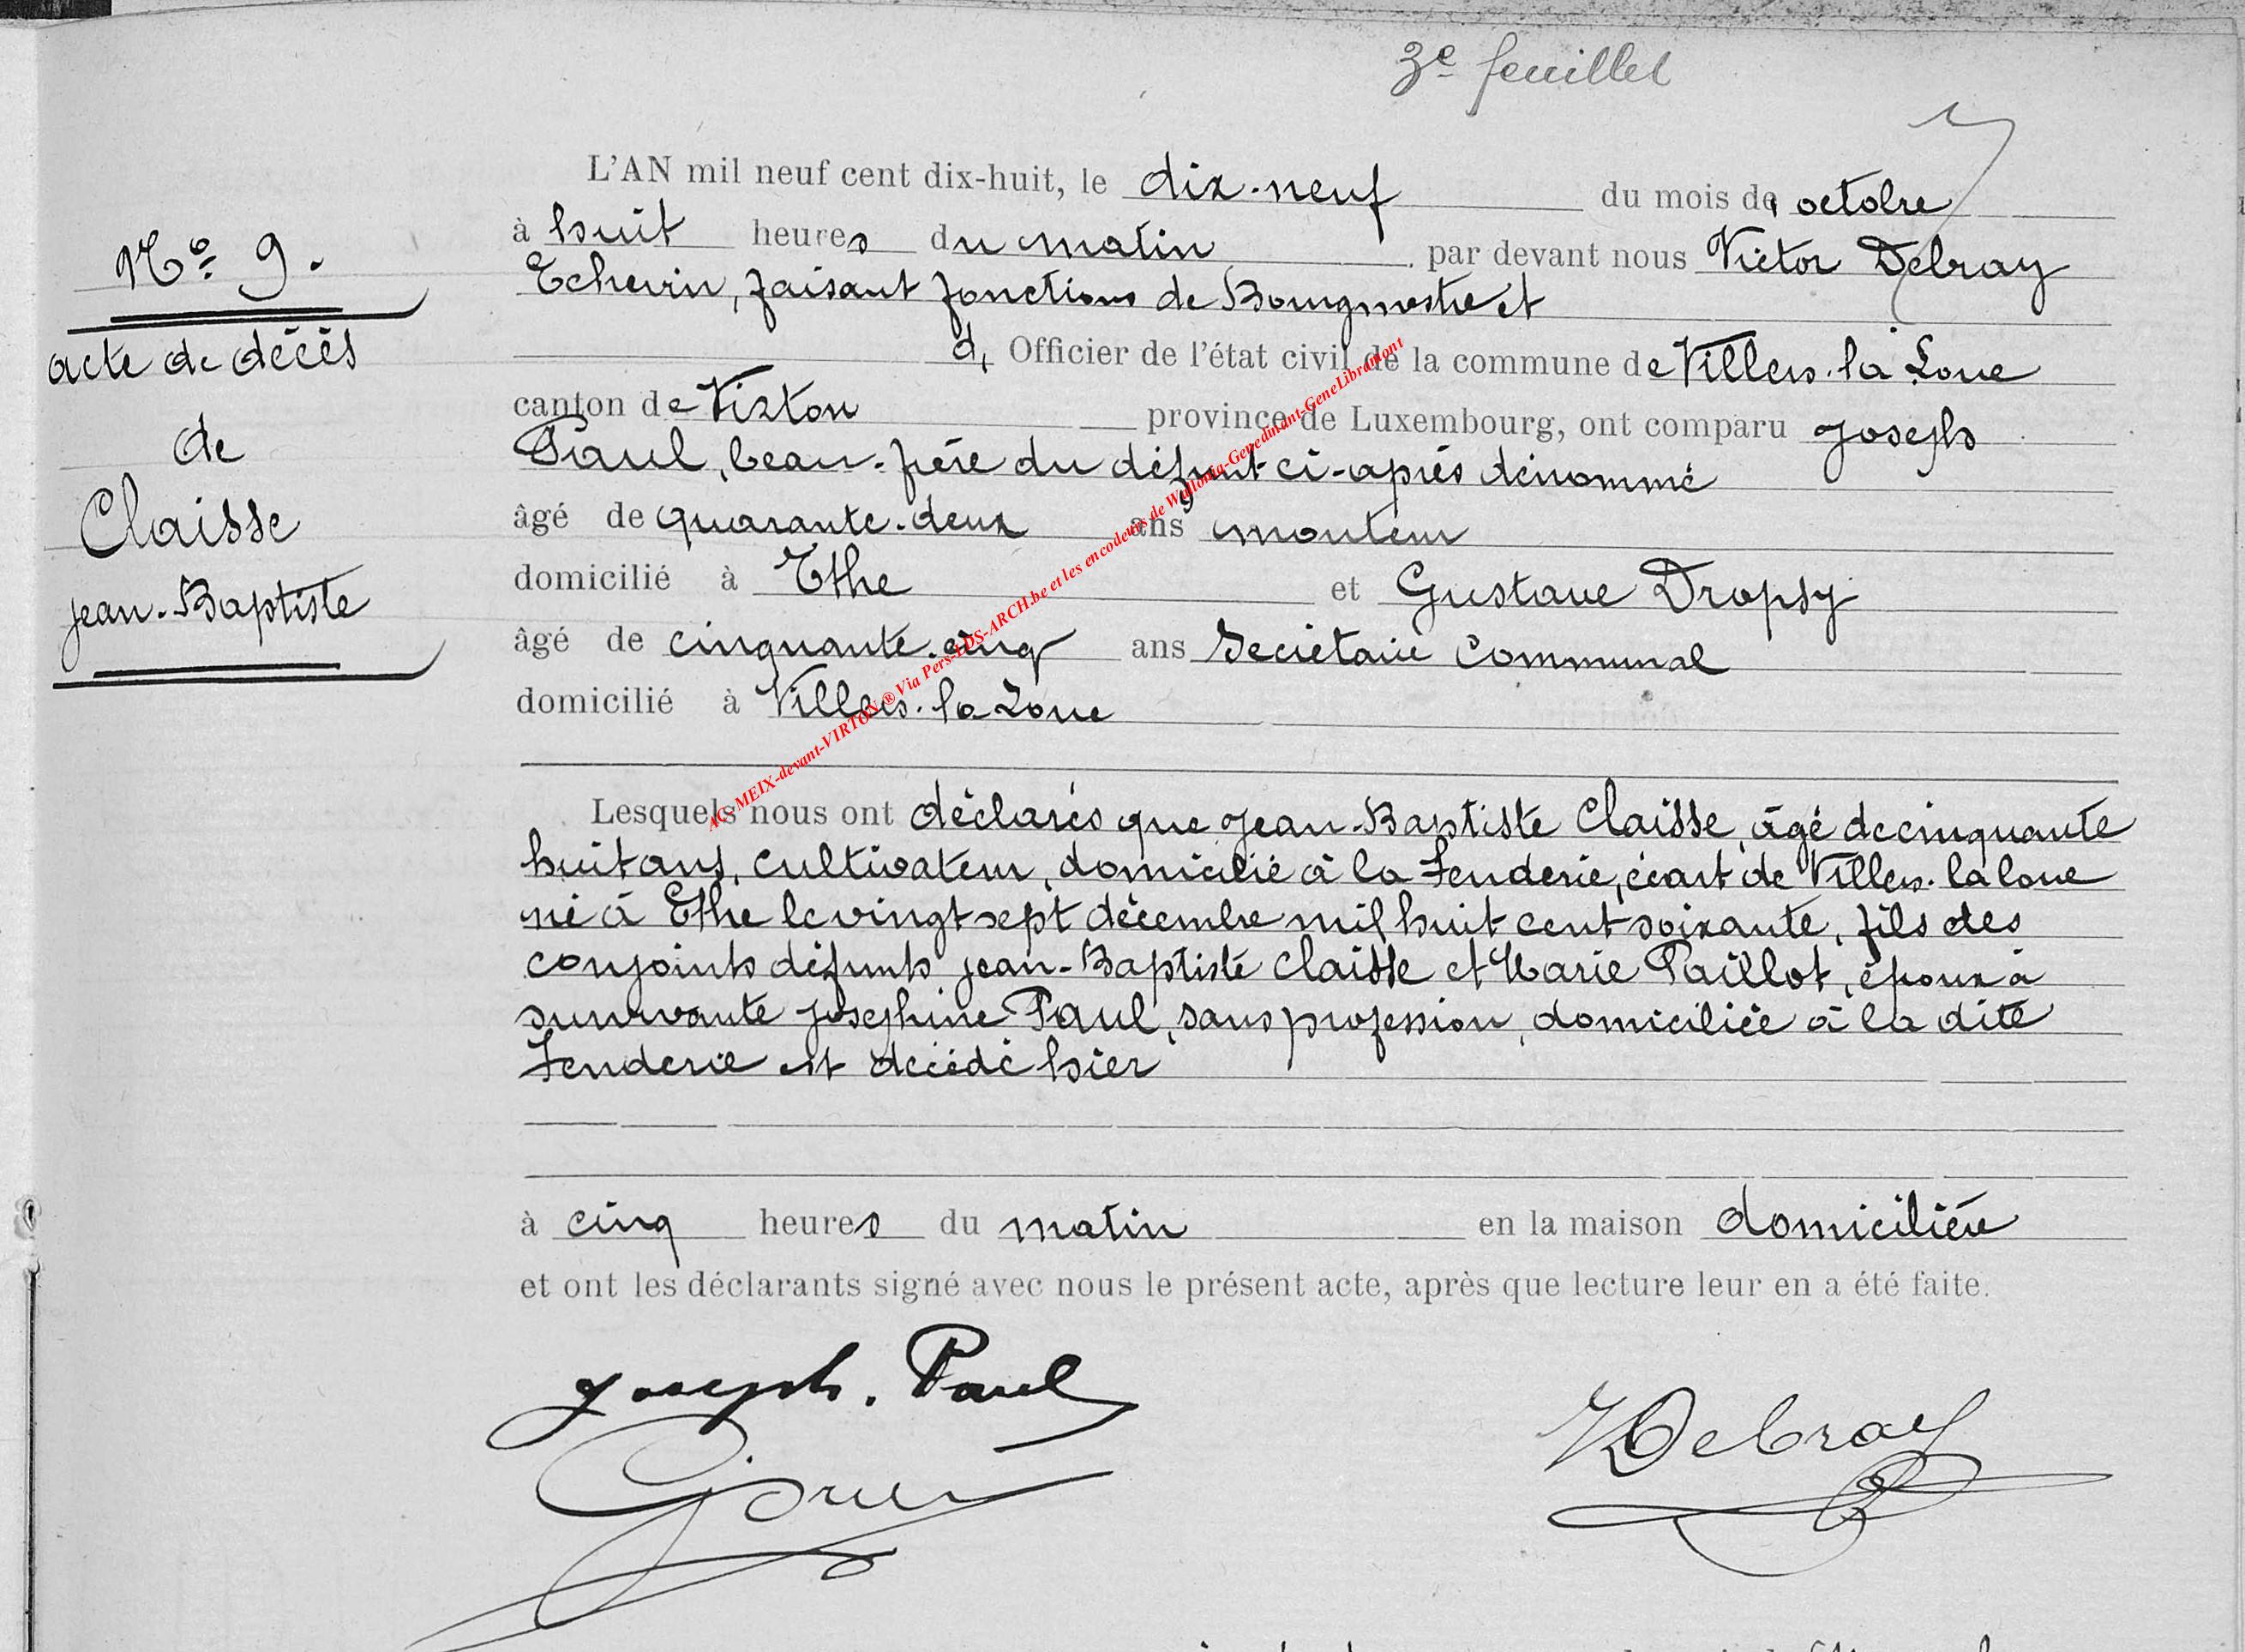 3e feuillet
L'AN mil neuf cent dix-huit, le dix-neuf du mois de octobre
à huit heures du matin par devant nous Victor Debray
Echevin, faisant fonctions de Bourgmestre et
d, Officier de l'état civil de la commune de Villers-la-Loue
canton de Virton province de Luxembourg, ont comparu Joseph
Paul, beau-frère du défunt ci-après dénommé
âgé de quarante-deux ans, monteur
domicilié à Ethe et Gustave Dropsy
âgé de cinquante-cinq ans Secrétaire Communal
domicilié à Villers-la-Loue
Lesquels nous ont déclarés que Jean-Baptiste Claisse, âgé de cinquante
huit ans, cultivateur, domicilié à la Fenderie, écart de Villers-la-loue
né à Ethe le vingt sept décembre mil huit cent soixante, fils des
conjoints défunts Jean-Baptiste Claisse et Marie Paillot, époux à
survivante Joséphine Paul, sans profession, domiciliée à la dite
Fenderie est décédé hier
à cinq heures du matin en la maison domicilière
et ont les déclarants signé avec nous le présent acte, après que lecture leur en a été faite.
Joseph. Paul
VDebray
No 9.
acte de décès
de
Claisse
Jean-Baptiste
AC-MEIX-devant-VIRTON ® Via Pers-LDS-ARCH.be et les encodeurs de Wallonia-Genedinant-GeneLibramont